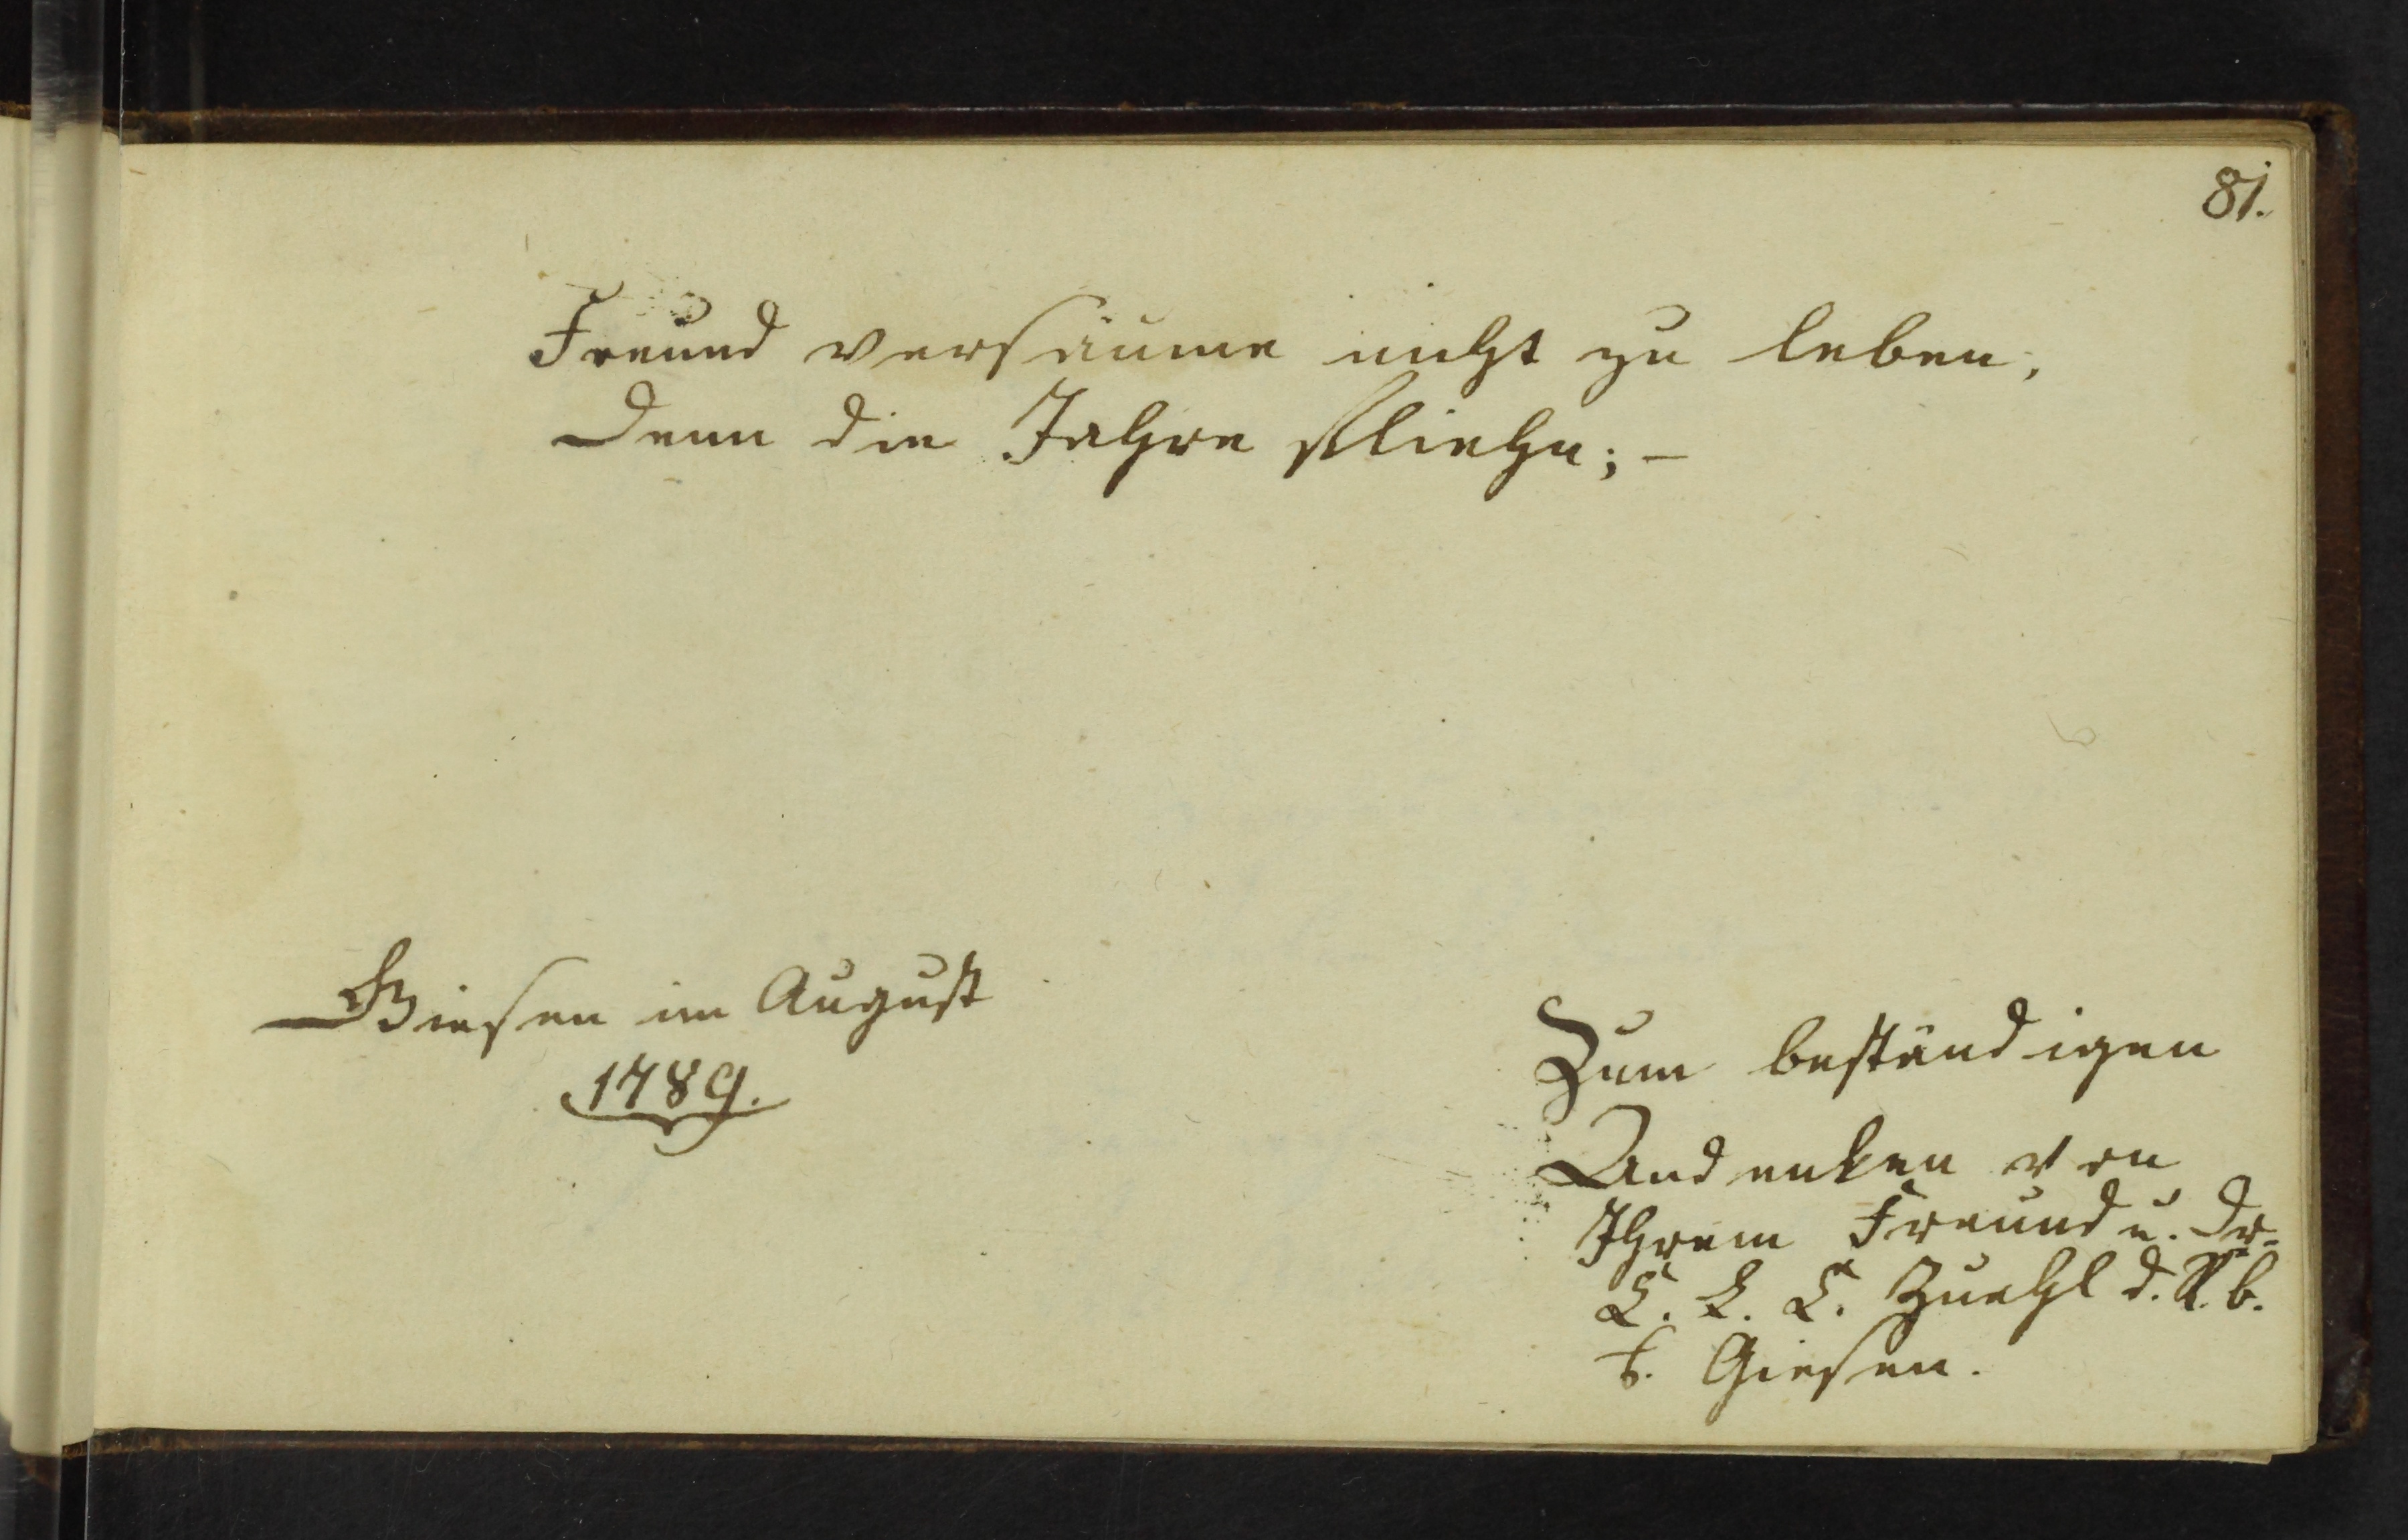 81.
Freund versäume nicht zu leben,
Denn die Jahre fliehn; –
Giesen im August
1789.
Zum beständigen
Andenken von
Ihrem Freund u. Dr.
L. L. L. Zuehl d. R. b.
f. Giesen.